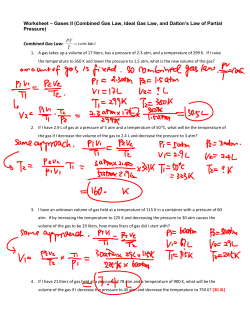 Worksheet – Gases II (Combined Gas Law, Ideal Gas Law, and Dalton's Law of Partial
Pressure)
Combined Gas Law: PV/T = constant
1. A gas takes up a volume of 17 liters, has a pressure of 2.3 atm, and a temperature of 299 K. If I raise
the temperature to 350 K and lower the pressure to 1.5 atm, what is the new volume of the gas?
amount of gas is fixed. so combined gas law
P1V1/T1 = P2V2/T2
P1 = 2.3atm P2 = 1.5atm
V1 = 17L V2 = ? L
T1 = 299K T2 = 350K
V2 =
= 30.5L
2. If I have 2.9 L of gas at a pressure of 5 atm and a temperature of 50 °C, what will be the temperature of
the gas if I decrease the volume of the gas to 2.4 L and decrease the pressure to 3 atm?
same approach. P1V1/T1 = P2V2/T2
P1 = 5atm P2 = 3atm
V1 = 2.9L V2 = 2.4L
T2 = P2V2/P1V1
= 323K
= 160. K
3. I have an unknown volume of gas held at a temperature of 115 K in a container with a pressure of 60
atm. If by increasing the temperature to 225 K and decreasing the pressure to 30 atm causes the
volume of the gas to be 29 liters, how many liters of gas did I start with?
same approach. P1V1/T1 = P2V2/T2
P1 = 60atm P2 = 30atm
V1 = ? L V2 = 29L
T1 = 115K T2 = 225K
V1 =
4. If I have 21 liters of gas held at a pressure of 78 atm and a temperature of 900 K, what will be the
volume of the gas if I decrease the pressure to 45 atm and decrease the temperature to 750 K?